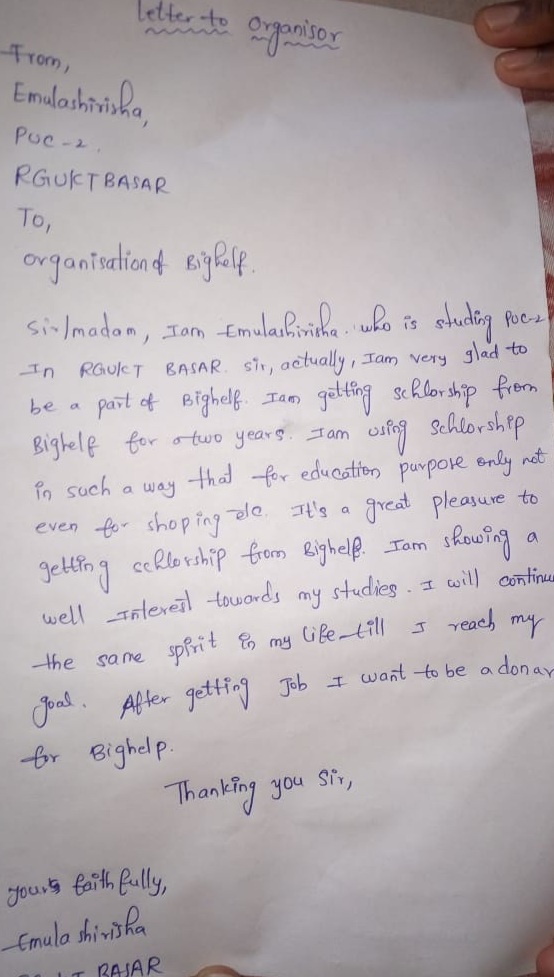 Letter to Organisor
From,
Emulashirisha,
PUC-2.
RGUKT BASAR
To,
organisation of Bighelp.
Sir/madam, Iam Emulashirisha. who is studing PUC-2
In RGUKT BASAR. sir, actually, Iam very glad to
be a part of Bighelp. Iam getting schlorship from
Bighelp for a two years. Iam using schlorship
in such a way that for education purpose only not
even for shoping etc. It's a great pleasure to
getting schlorship from Bighelp. Iam showing a
well Interest towards my studies. I will continue
the same spirit in my life till I reach my
goal. After getting Job I want to be a donar
for Bighelp.
Thanking you Sir,
yours faithfully,
Emula shirisha
BASAR